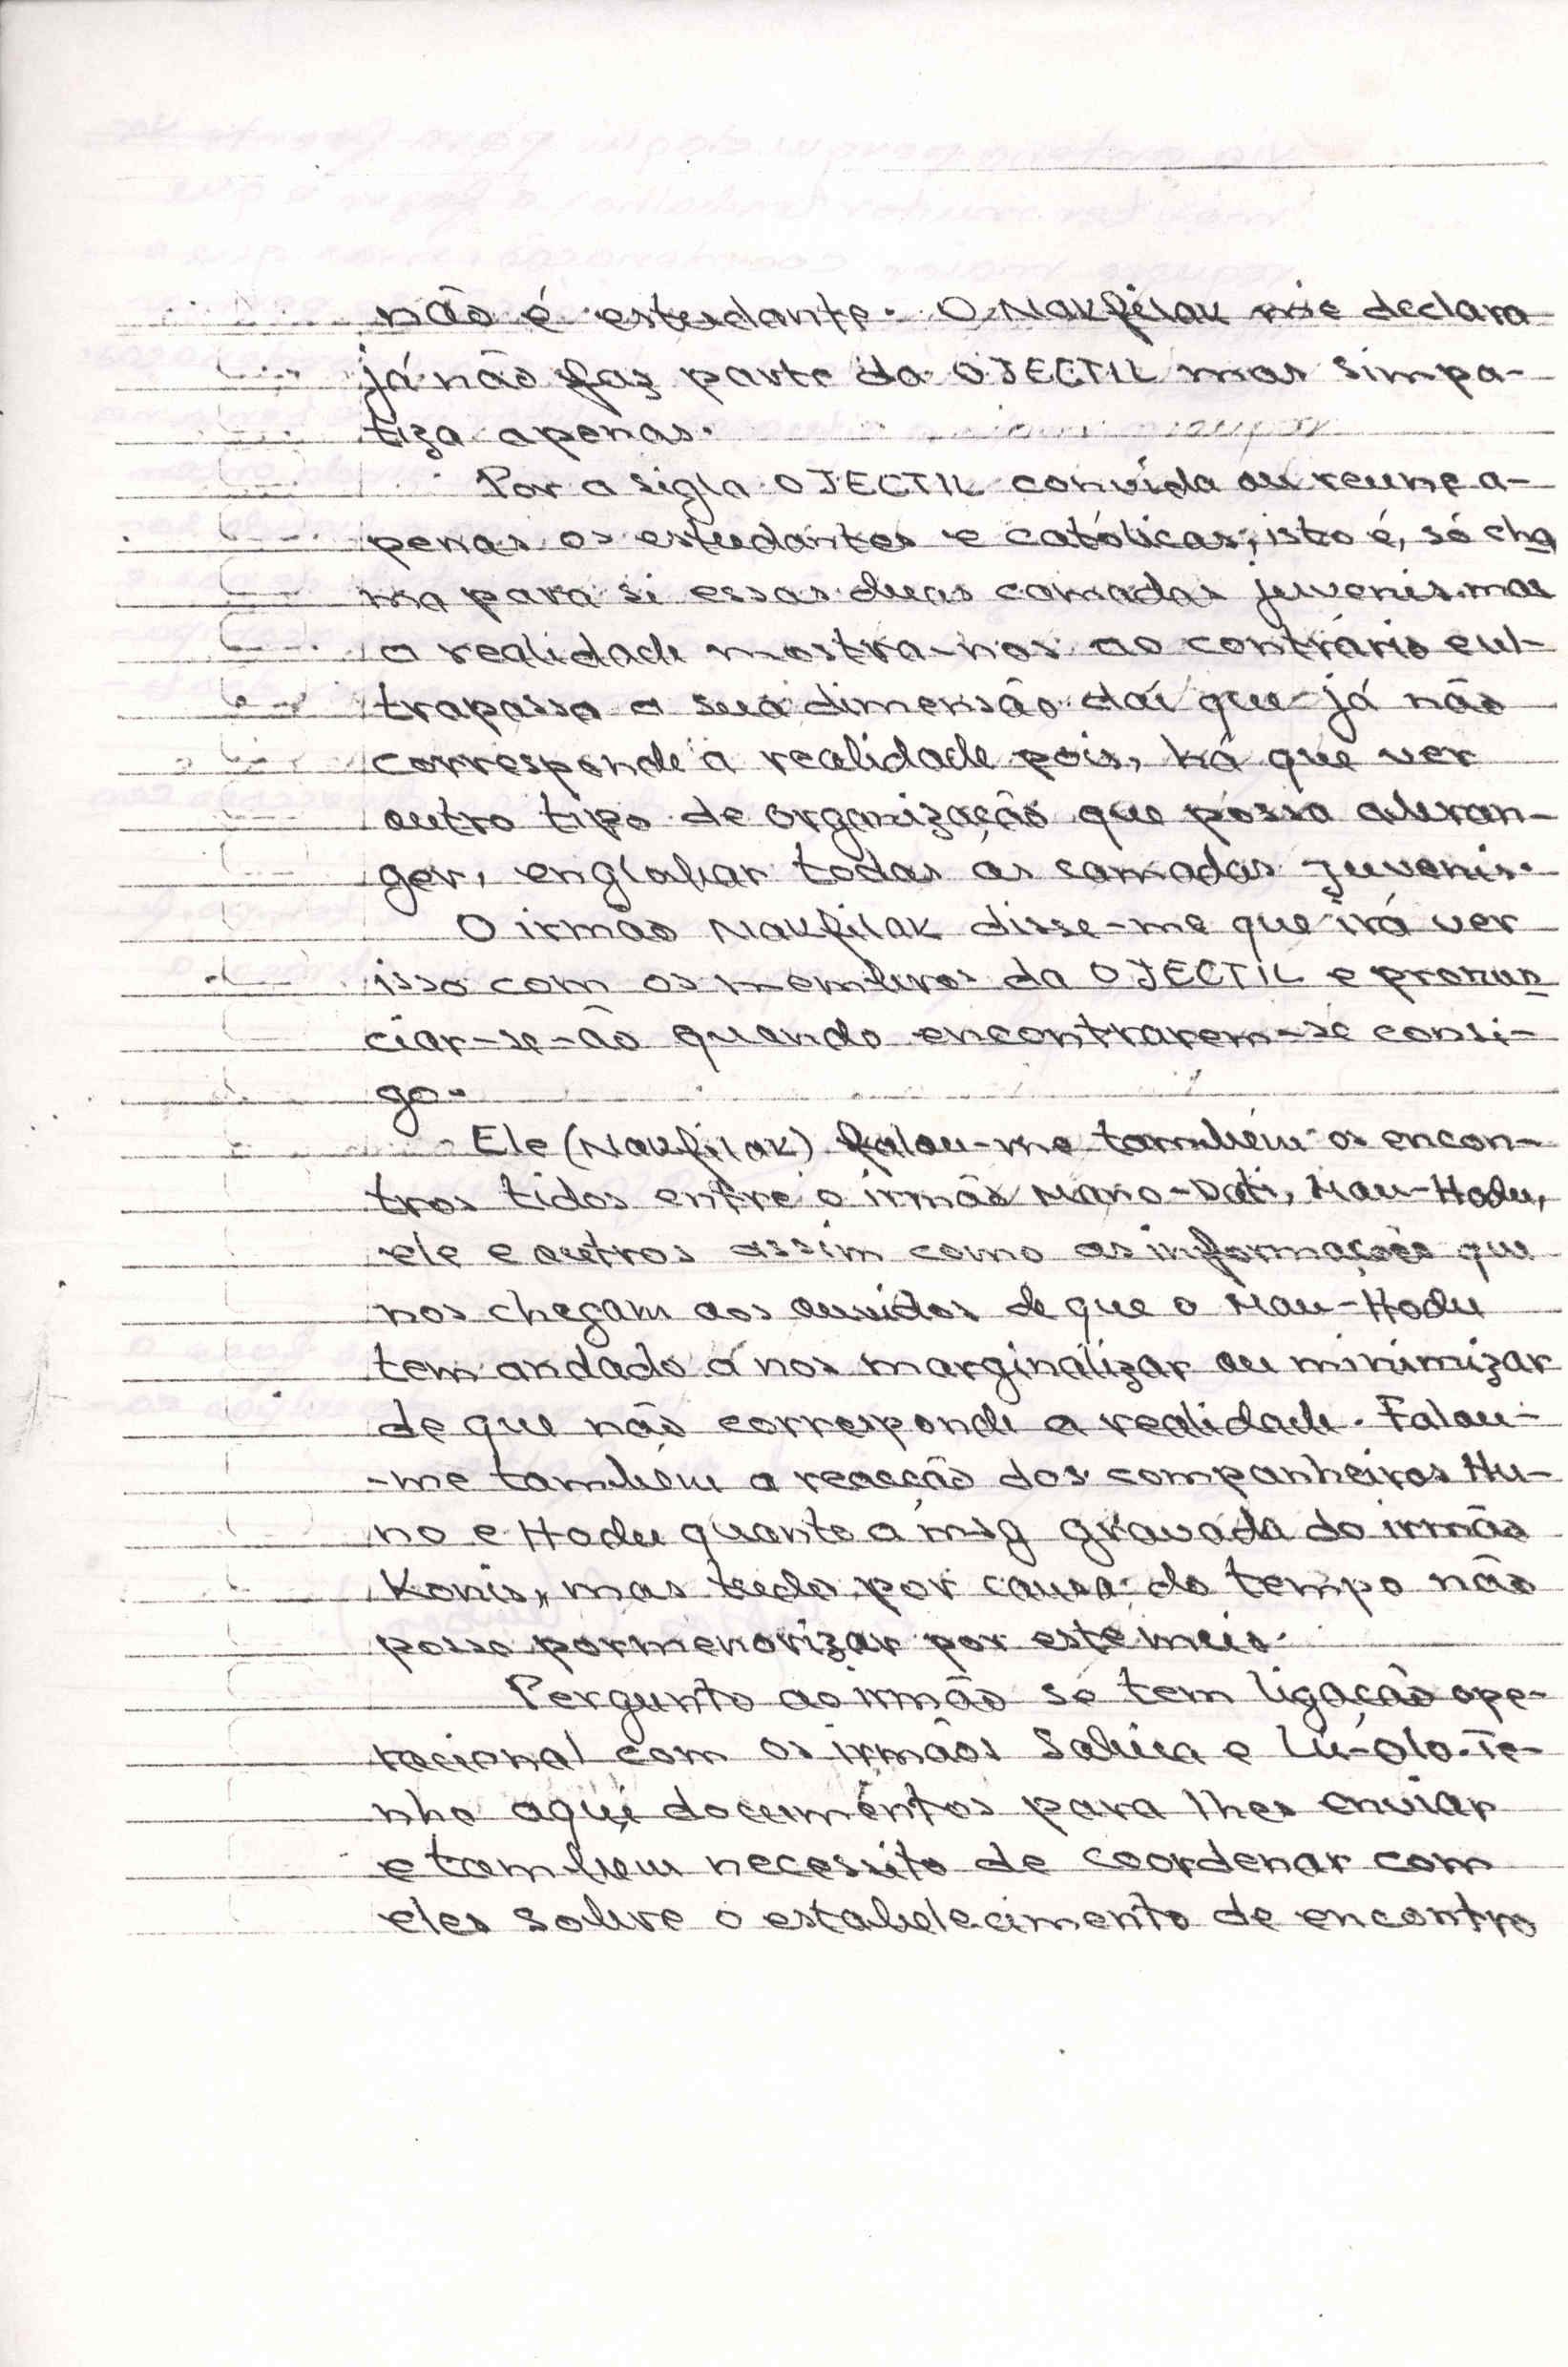 não é estudante. O Nakfilak me declara
já não faz parte da OJECTIL mas simpa-
tiza apenas.
Por a sigla OJECTIL convida ou reune a-
penas os estudantes e católicas, isto é, só cha
ma para si essas duas camadas juvenis. mas
a realidade mostra-nos ao contrário e ul-
trapassa a sua dimensão daí que já não
corresponde a realidade pois, há que ver
outro tipo de organização que possa abran-
ger, englobar todas as camadas juvenis.
O irmão Nakfilak disse-me que irá ver
isso com os membros da OJECTIL e pronun
ciar-se-ão quando encontrarem-se consi-
go.
Ele (Nakfilak) falou-me também os encon-
tros tidos entre o irmão Mano-Dati, Mau-Hodu,
ele e outros assim como as informações que
nos chegam aos ouvidos de que o Mau-Hodu
tem andado a nos marginalizar ou minimizar
de que não corresponde a realidade. Falou-
-me também a reacção dos companheiros Hu-
no e Hodu quanto a msg gravada do irmão
Konis, mas tudo por causa do tempo não
posso pormenorizar por este meio.
Pergunto ao irmão se tem ligação ope-
racional com os irmãos Sabica e Lú-Olo. Te-
nho aqui documentos para lhes enviar
e também necessito de coordenar com
eles sobre o estabelecimento de encontro